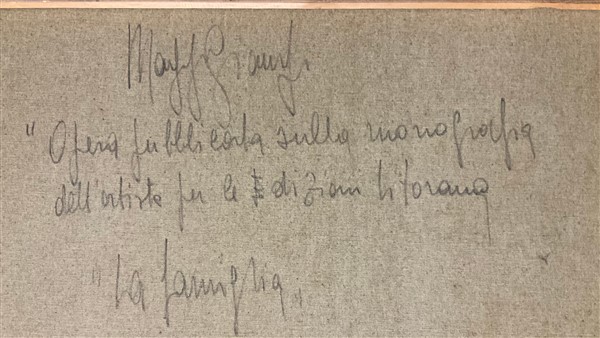 " Opera pubblicata sulla monografia
dell'artista per le Edizioni Litorana
" La famiglia "